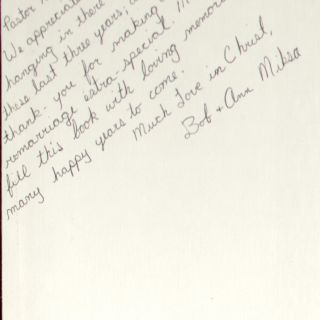 Pastor
We appreciate
hanging in there
these last three years,
thank-you for making
remarriage extra-special.
fill this book with loving
many happy years to come.
Much Love in Christ,
Bob + Ann Miksa